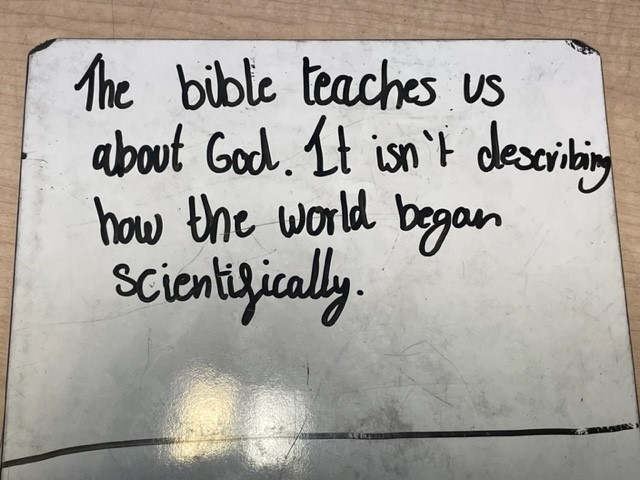 The bible teaches us
about God. It isn't describing
how the world began
scientifically.